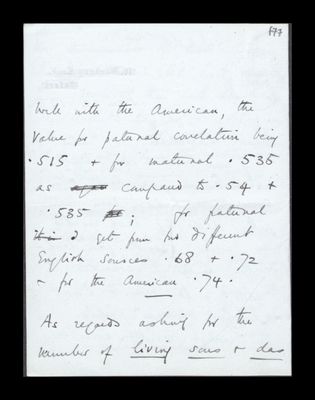 177
work with the American, the
value for paternal correlation being
.515 + for maternal .535
as compared to .54 +
.535 ; for fraternal
I get from two different
English sources .68 + .72
+ for the American .74.
As regards asking for the
number of living sons + dau